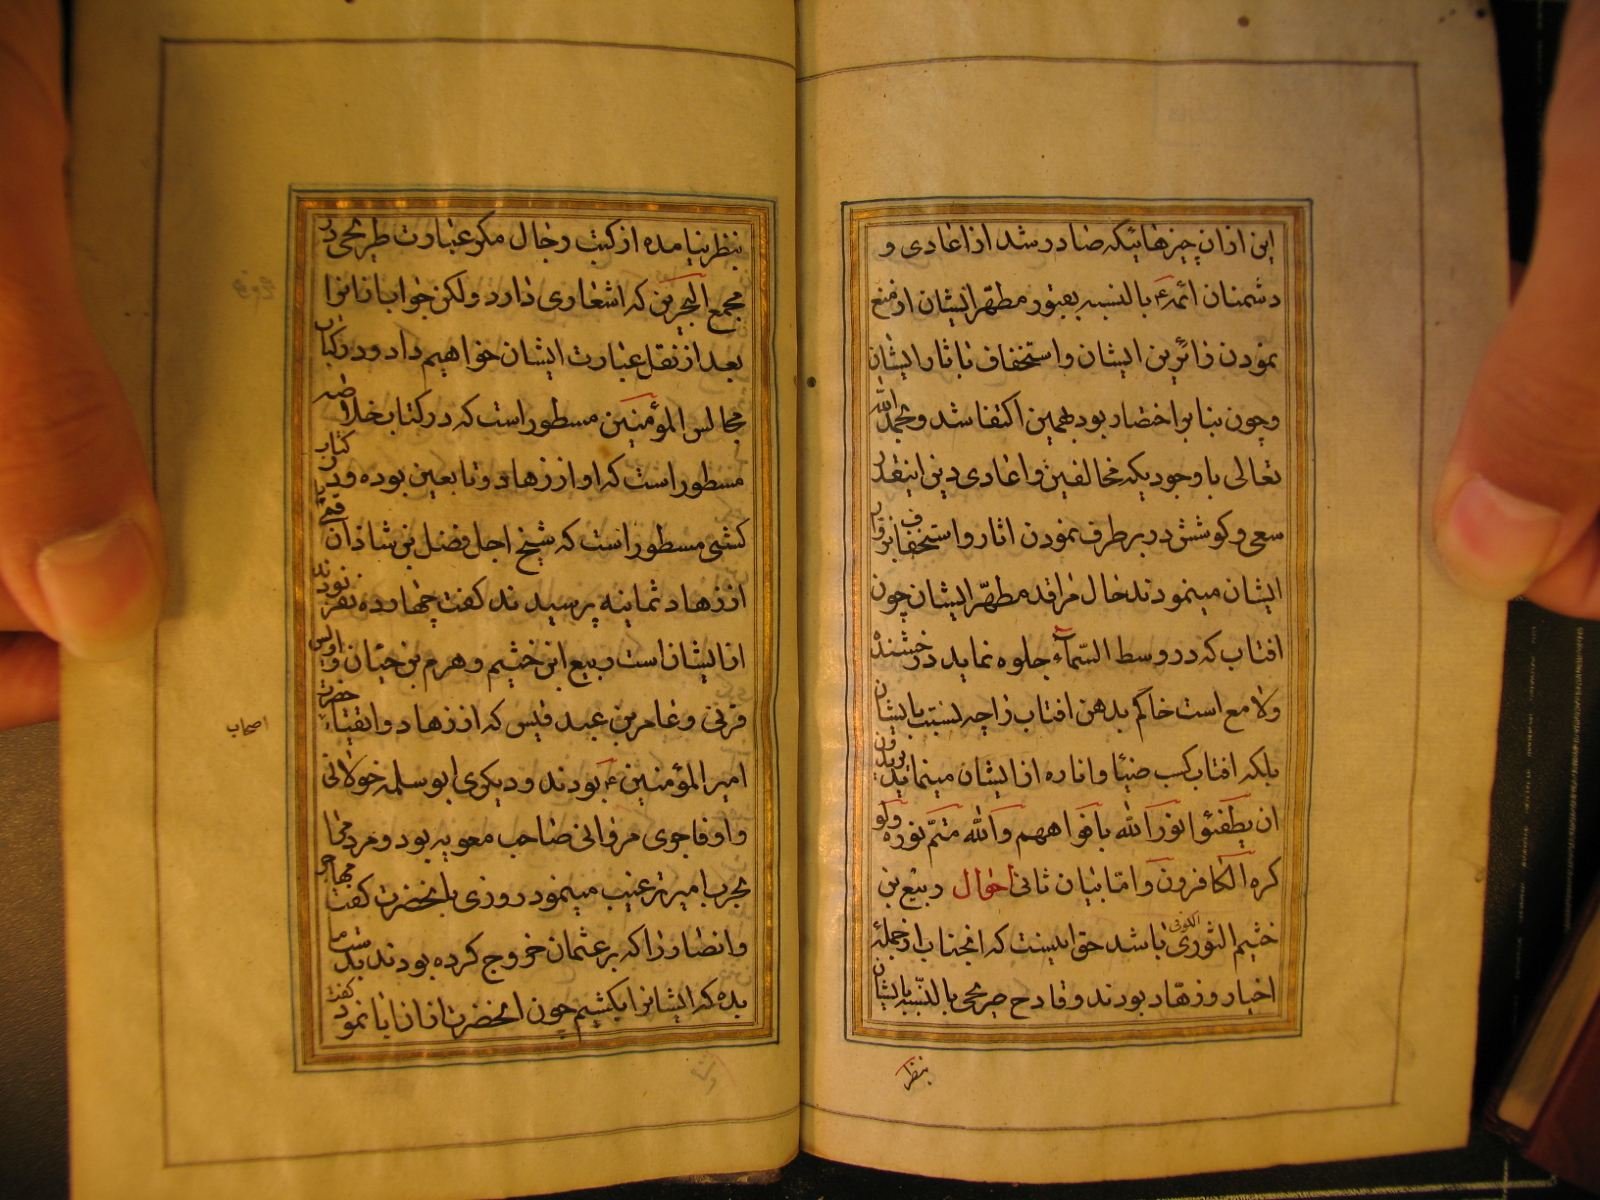 این ازان چیزهائیکه صادر شد از اعادی و
دشمنان ائمه ع بالنسبه بعبور مطهر ایشان از منع
نمودن زائرین ایشان و استخفاف باثار ایشان
و چون بنا بر اختصار بود بهمین اکتفا شد و بحمد الله
تعالی با وجودیکه مخالفین و اعادی دین اینقدر
سعی و کوشش در برطرف نمودن اثار و استخفاف
ایشان مینمودند حال مراقد مطهّر ایشان چون
افتاب که در وسط السّمآء جلوه نماید درخشنده
و لامع است خاکم بدهن افتاب را چه نسبت بایشان
بلکه افتاب کسب ضیا و اناره از ایشان مینماید یریدون
ان یطفئوا نور الله بافواههم والله متمّ نوره ولو
کره الکافرون و امّا بیان ثانی احوال ربیع بن
خثیم الثوری الکوفی باشد حق اینست که انجناب از جملهٔ
اخیار و زهّاد بودند و قادح صریحی بالنّسبه بایشان
بنظر
بنظر نیامده از کتب رجال مکر عبارت طریحی در
مجمع البحرین که اشعاری دارد ولکن جواب انرا
بعد از نقل عبارت ایشان خواهیم داد و در کتاب
مجالس المؤمنین مسطور است که در کتاب خلاصه
مسطور است که او از زهاد و تابعین بوده و در کتاب
کشی مسطور است که شیخ اجل فضل بن شاذان
از زهاد ثمانیه پرسیدند کفت چهار ده نفر
از ایشان است ربیع ابن خثیم و هرم بن حیان و اویس
قرنی و عامر بن عبد قیس که از زهاد و اتقیاء حضرت
اصحاب
امیر المؤمنین ع بودند و دیکری ابو سلمه خولانی
و او فاجری مروانی صاحب معویه بود و مردم را
بحرب امیر ترغیب مینمود روزی بانحضرت کفت مهاجر
و انصار را که بر عثمان خروج کرده بودند بدست ما
بده که ایشانرا بکشیم چون انحضرت ازان ابا نمود کفت